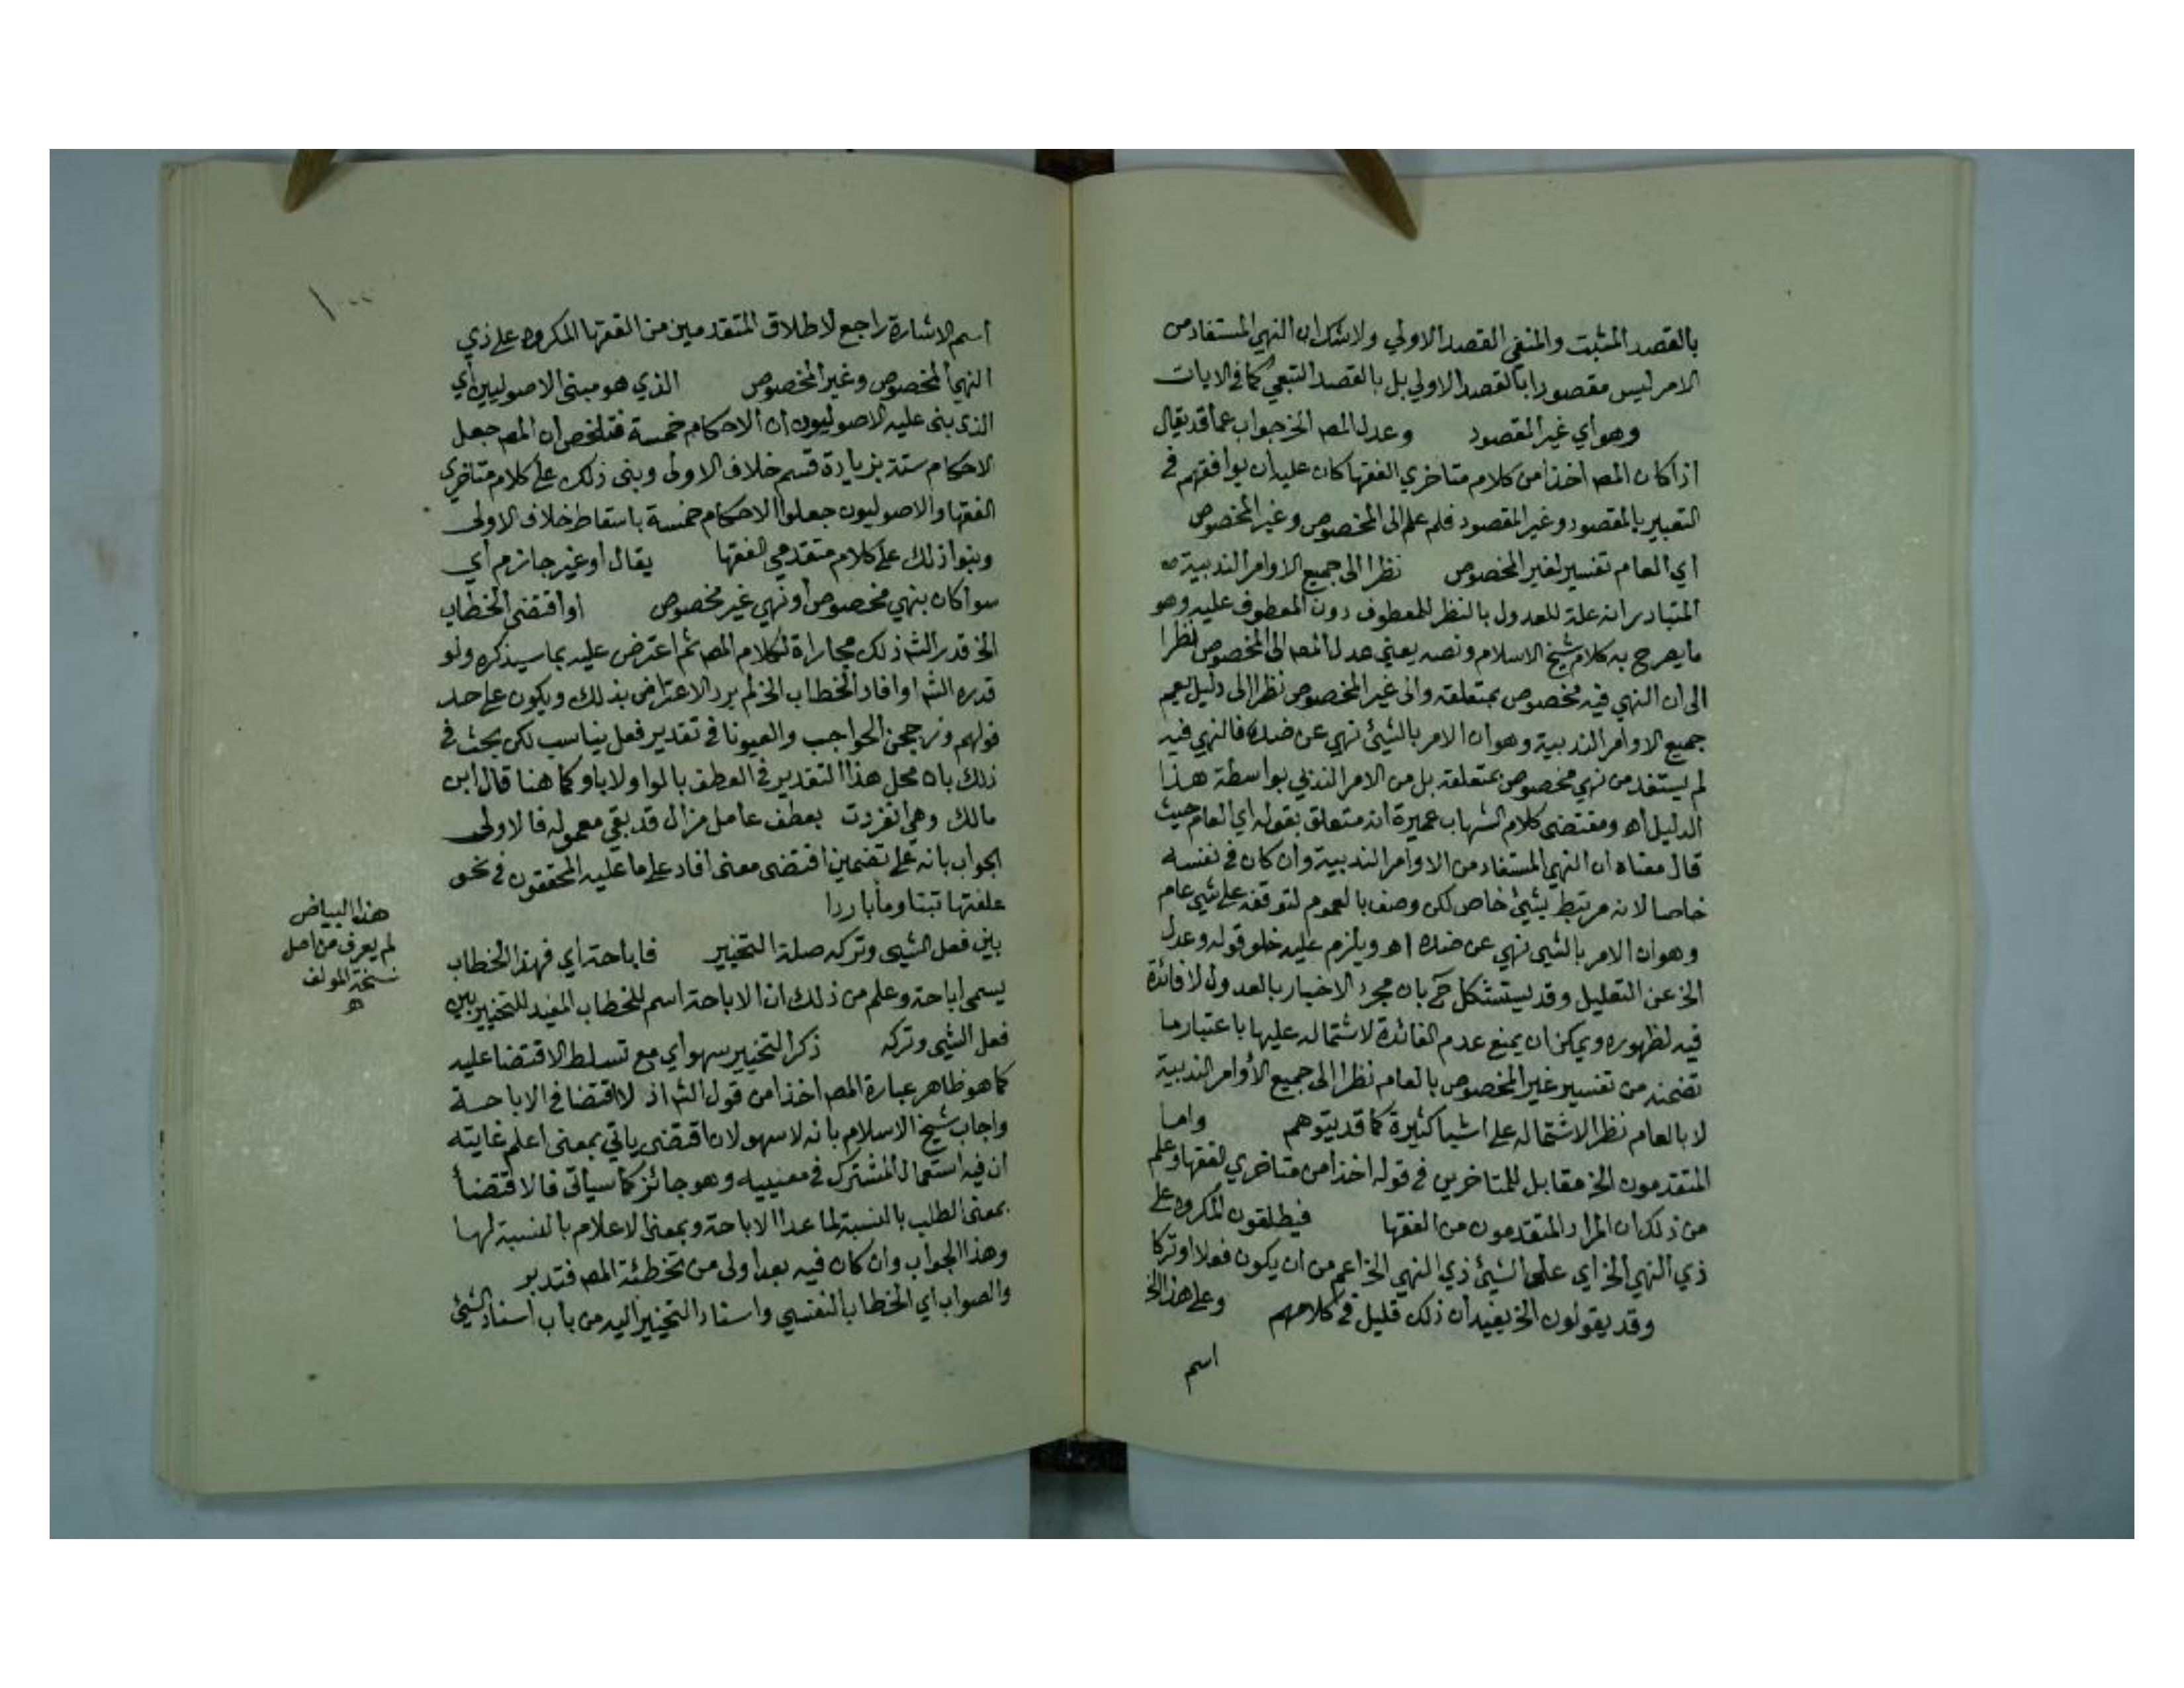 بالقصد المثبت والمنفي القصد الاولي ولاشك ان النهي المستفاد من
الامر ليس مقصودا بالقصد الاولي بل بالقصد التبعي كما في الايات
وهو أي غير المقصود وعدل المصـ الخ جواب عما قد يقال
اذا كان المصـ اخذا من كلام متاخري الفقها كان عليه ان يوافقهم في
التعبير بالمقصود وغير المقصود فلم عدل الى المخصوص وغير المخصوص
اي العام تفسير لغير المخصوص نظرا الى جميع الاوامر الندبية
المتبادر انه علة للعدول بالنظر للمعطوف دون المعطوف عليه وهو
ما يصرح به كلام شيخ الاسلام ونصه يعني عدل المصـ الى المخصوص نظرا
الى ان النهي فيه مخصوص بمتعلقه والى غير المخصوص نظرا الى دليل يعم
جميع الاوامر الندبية وهو ان الامر بالشيئ نهي عن ضده فالنهي فيه
لم يستفد من نهي مخصوص بمتعلقه بل من الامر الندبي بواسطة هذا
الدليل اهـ ومقتضى كلام الشهاب عميرة انه متعلق بقوله اي العام حيث
قال معناه ان النهي المستفاد من الاوامر الندبية وان كان في نفسه
خاصا لانه مرتبط بشيئ خاص لكن وصف بالعموم لتوقفه على شيئ عام
وهو ان الامر بالشيئ نهي عن ضده اهـ ويلزم عليه خلو قوله وعدل
الخ عن التعليل وقد يستشكل ح بان مجرد الاخبار بالعدول لا فائدة
فيه لظهوره ويمكن ان يمنع عدم الفائدة لاشتماله عليها باعتبار ما
تضمنه من تفسير غير المخصوص بالعام نظرا الى جميع الأوامر الندبية
لا بالعام نظرا لاشتماله على اشيا كثيرة كما قد يتوهم واما
المتقدمون الخ مقابل للمتاخرين في قوله اخذا من متاخري الفقها وعلم
من ذلك ان المراد المتقدمون من الفقها فيطلقون المكروه على
ذي النهي الخ اي على الشيئ ذي النهي الخ اعم من ان يكون فعلا او تركا
وقد يقولون الخ يفيد ان ذلك قليل في كلامهم وعلى هذا الخ
اسم
اسم الاشارة راجع لاطلاق المتقدمين من الفقها المكروه على ذي
النهي المخصوص وغير المخصوص الذي هو مبنى الاصوليين أي
الذي بنى عليه الاصوليون ان الاحكام خمسة فتلخص ان المصـ جعل
الاحكام ستة بزيادة قسم خلاف الاولى وبنى ذلك على كلام متاخري
الفقها والاصوليون جعلوا الاحكام خمسة باسقاط خلاف الاولى
وبنوا ذلك على كلام متقدمي الفقها يقال أو غير جازم أي
سوا كان بنهي مخصوص أو نهي غير مخصوص او اقتضى الخطاب
الخ قدر الشـ ذلك مجاراة لكلام المصـ ثم اعترض عليه بما سيذكره ولو
قدره الشـ او افاد الخطاب الخ لم يرد الاعتراض بذلك ويكون على حد
قولهم وزججن الحواجب والعيونا في تقدير فعل يناسب لكن بحث في
ذلك بان محل هذا التقدير في العطف بالواو لا باو كما هنا قال ابن
مالك وهي انفردت بعطف عامل مزال قد بقي معموله فالاولى
الجواب بانه على تضمين اقتضى معنى افاد على ما عليه المحققون في نحو
علفتها تبنا وما باردا
بين فعل الشيئ وتركه صلة التخيير فاباحة اي فهذا الخطاب
يسمى اباحة وعلم من ذلك ان الاباحة اسم للخطاب المفيد للتخيير بين
فعل الشيئ وتركه ذكر التخيير سهو أي مع تسلط الاقتضا عليه
كما هو ظاهر عبارة المصـ اخذا من قول الشـ اذ لا اقتضا في الاباحة
واجاب شيخ الاسلام بانه لا سهو لان اقتضى ياتي بمعنى اعلم غايته
ان فيه استعمال المشترك في معنييه وهو جائز كما سيأتي فالاقتضأ
بمعنى الطلب بالنسبة لما عدا الاباحة وبمعنى الاعلام بالنسبة لها
وهذا الجواب وان كان فيه بعد اولى من تخطئة المصـ فتدبر
والصواب اي الخطاب النفسي واسناد التخيير اليه من باب اسناد الشيئ
هذا البياض
لم يعرف من اصل
نسخة المولف
اهـ